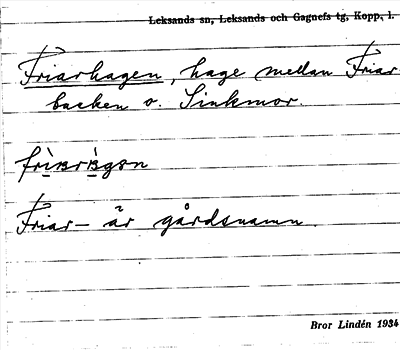 Leksands sn, Leksands och Gagnefs tg, Kopp. l.
Friarhagen, hage mellan Friar
backen o. Sinkmor.
Friar- är gårdsnamn.
Bror Lindén 1934